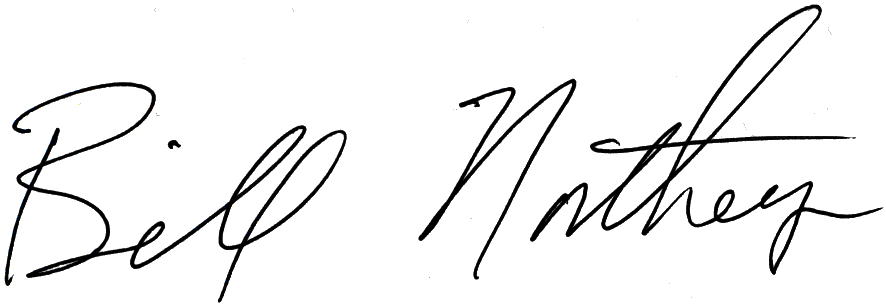 Bill Northey